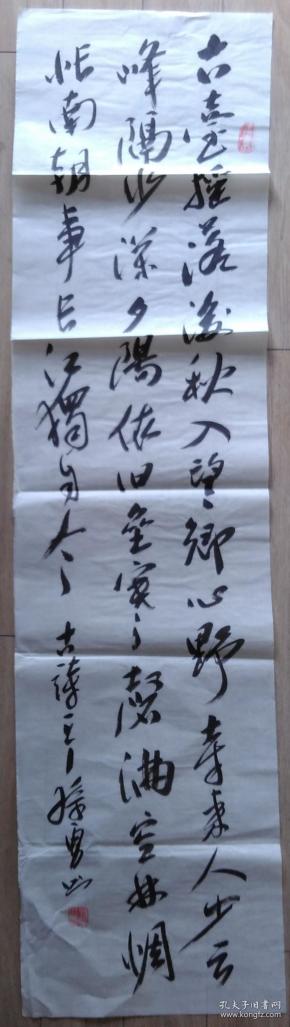 古臺摇落後秋入望鄉心野寺来人少云
峰隔水深夕陽依旧壘寒磬满空林惆
怅南朝事长江獨自今
古詩一首
孔夫子旧书网
www.kongfz.com